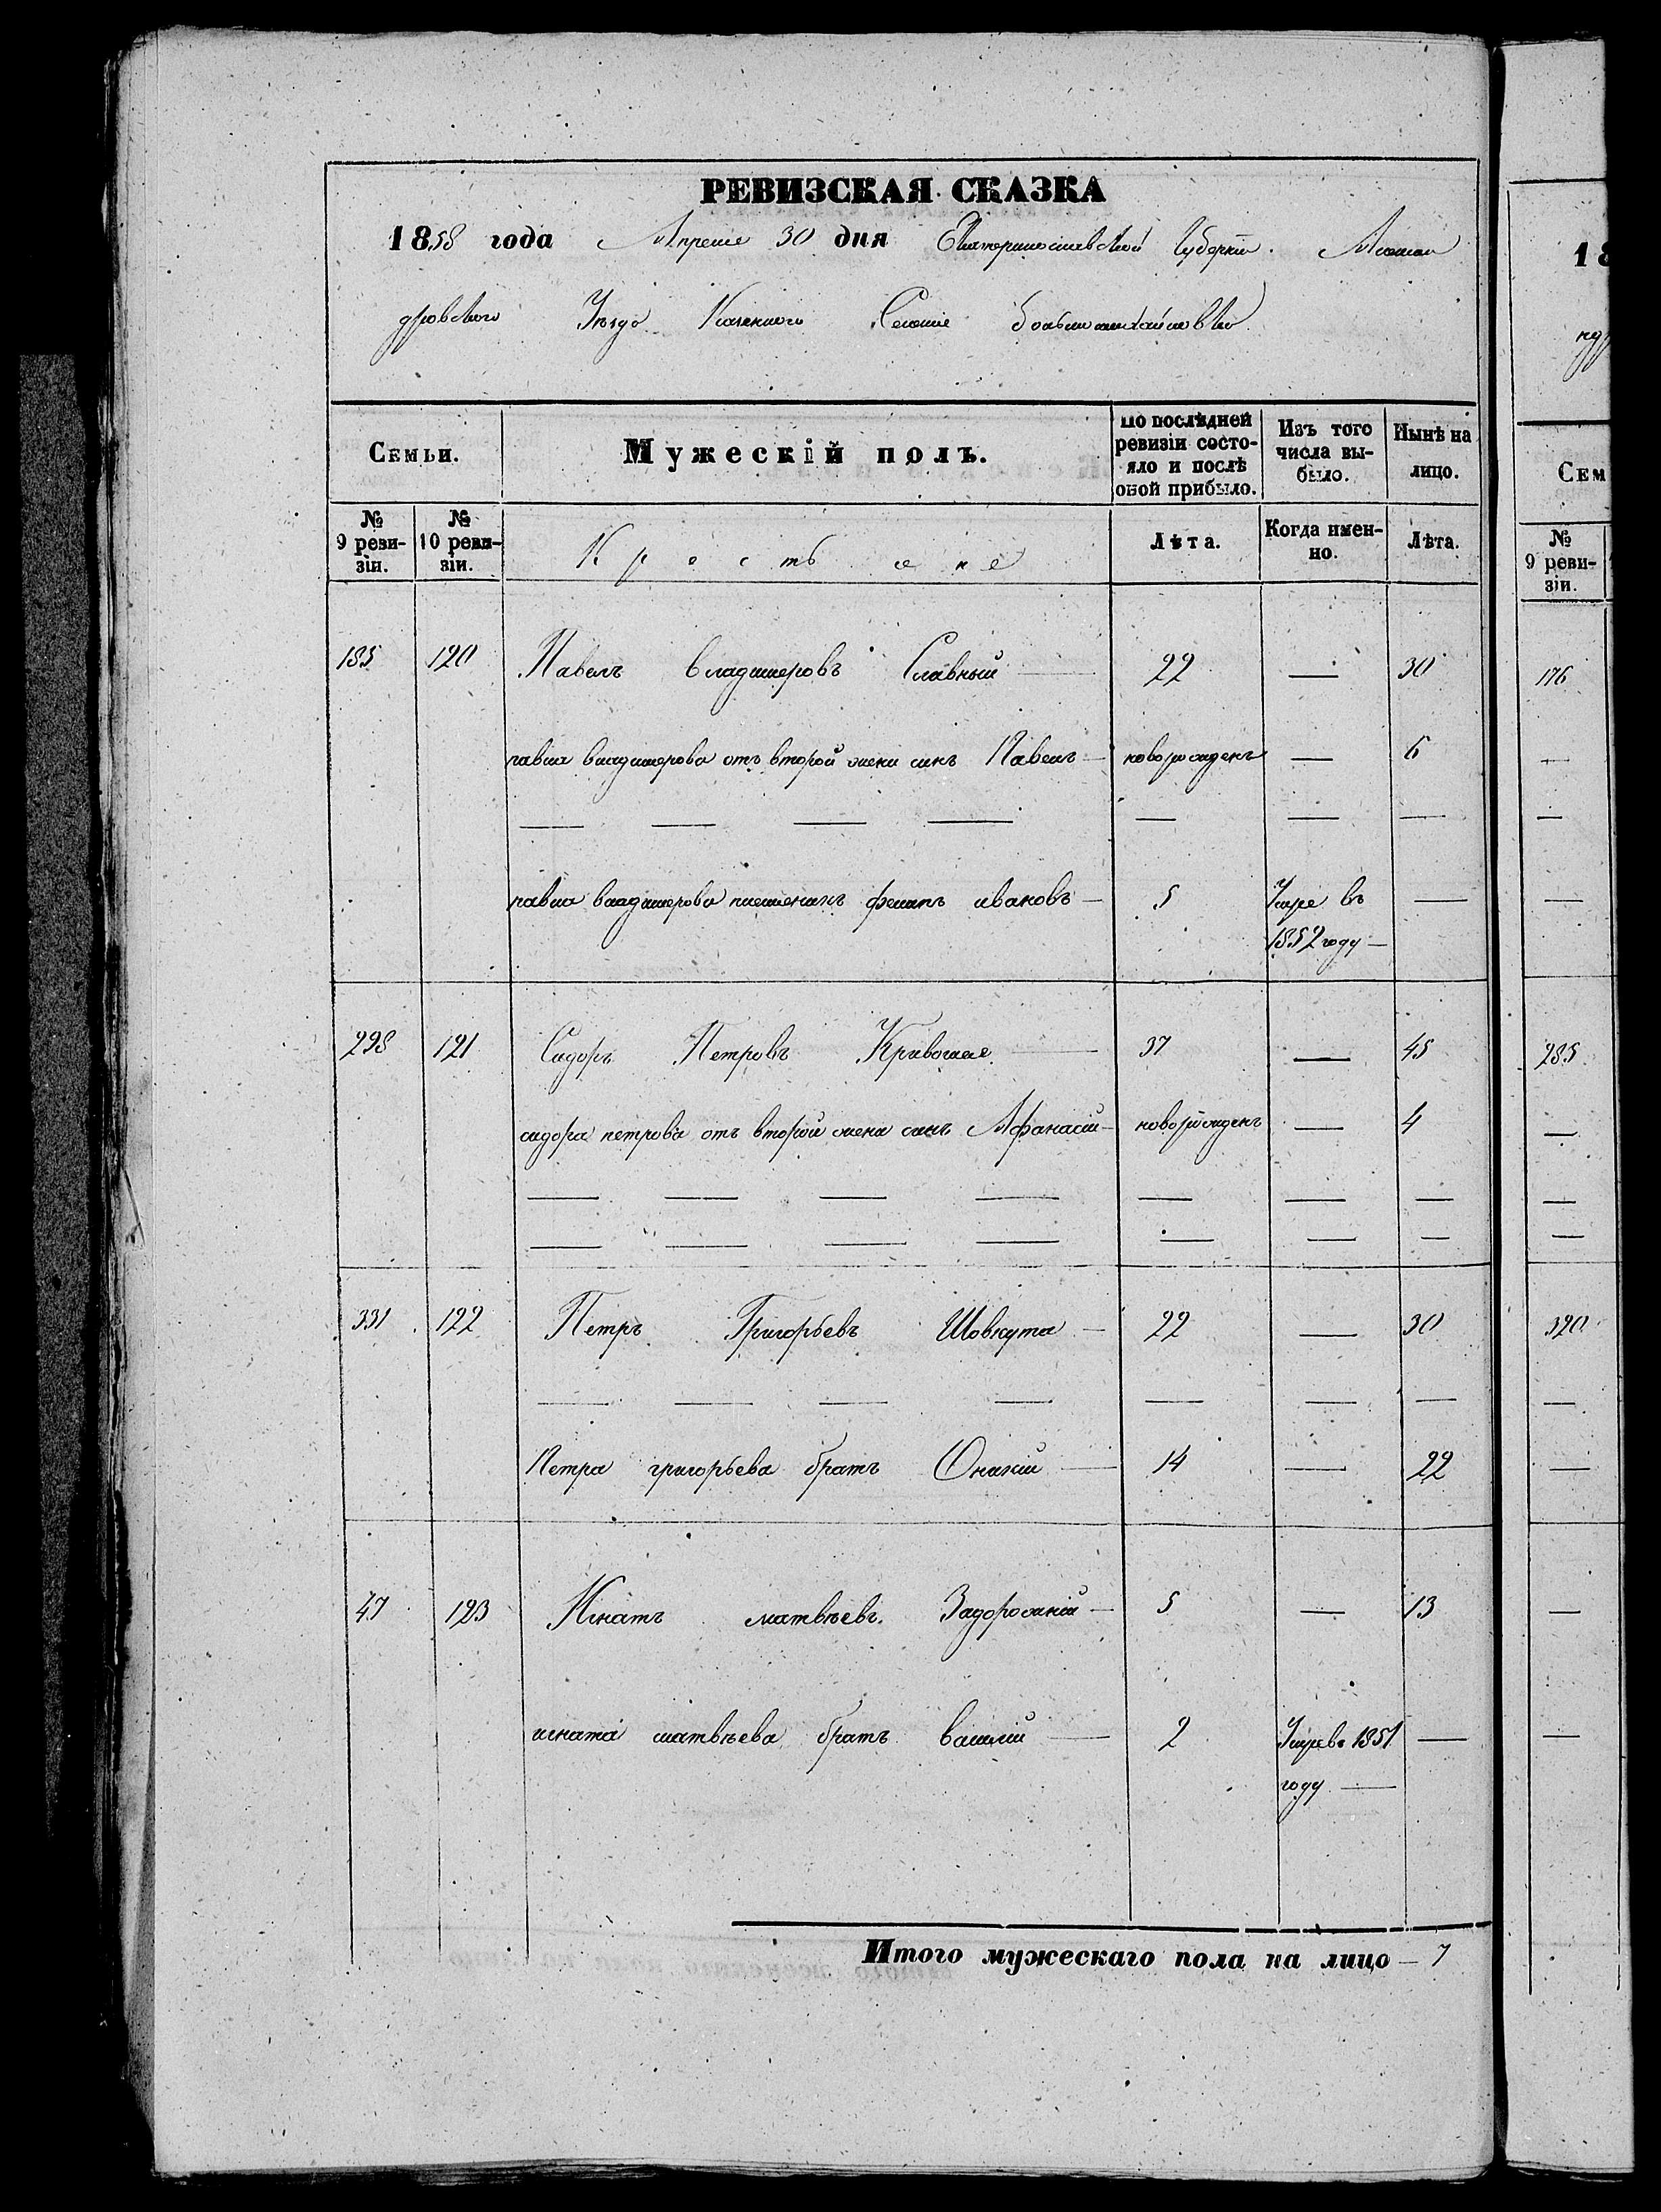 РЕВИЗСКАЯ СКАЗКА
1858 года Апреля 30 дня Екатеринославской Губернiи. Алексан
дровского Уезда Казенного Селенiя большемихайловки
Семьи. Мужескій полъ. По послѣдней ревизіи состояло и послѣ оной прибыло. Изъ того числа выбыло. Нынѣ на лицо.
№ 9 ревизіи. № 10 ревизіи. Крестьяне Лѣта. Когда именно. Лѣта.
185 120 Павелъ владимеровъ Славный — 22 — 30
павла владимерова отъ второй жени синъ Павелъ — новорожденъ — 6
— — — — — — —
павла владимерова племенникъ филипъ ивановъ — 5 Умре въ —
1852 году —
298 121 Сидоръ Петровъ Кривошея — 37 — 45
сидора петрова отъ второй жени синъ Афанасiй — новорожденъ — 4
— — — — — — —
— — — — — — —
331 122 Петръ Григорьевъ Шовкута — 22 — 30
— — — — — — —
Петра григорьева братъ Оникiй — 14 — 22
47 123 Игнатъ матвѣевъ Задорожнiй — 5 — 13
игната матвѣева братъ василiй — 2 Умре въ 1851 —
году —
Итого мужескаго пола на лицо — 7
18
ндр
Сем
№ 9 ревизіи.
176
—
—
—
285
—
—
—
320
—
—
—
—